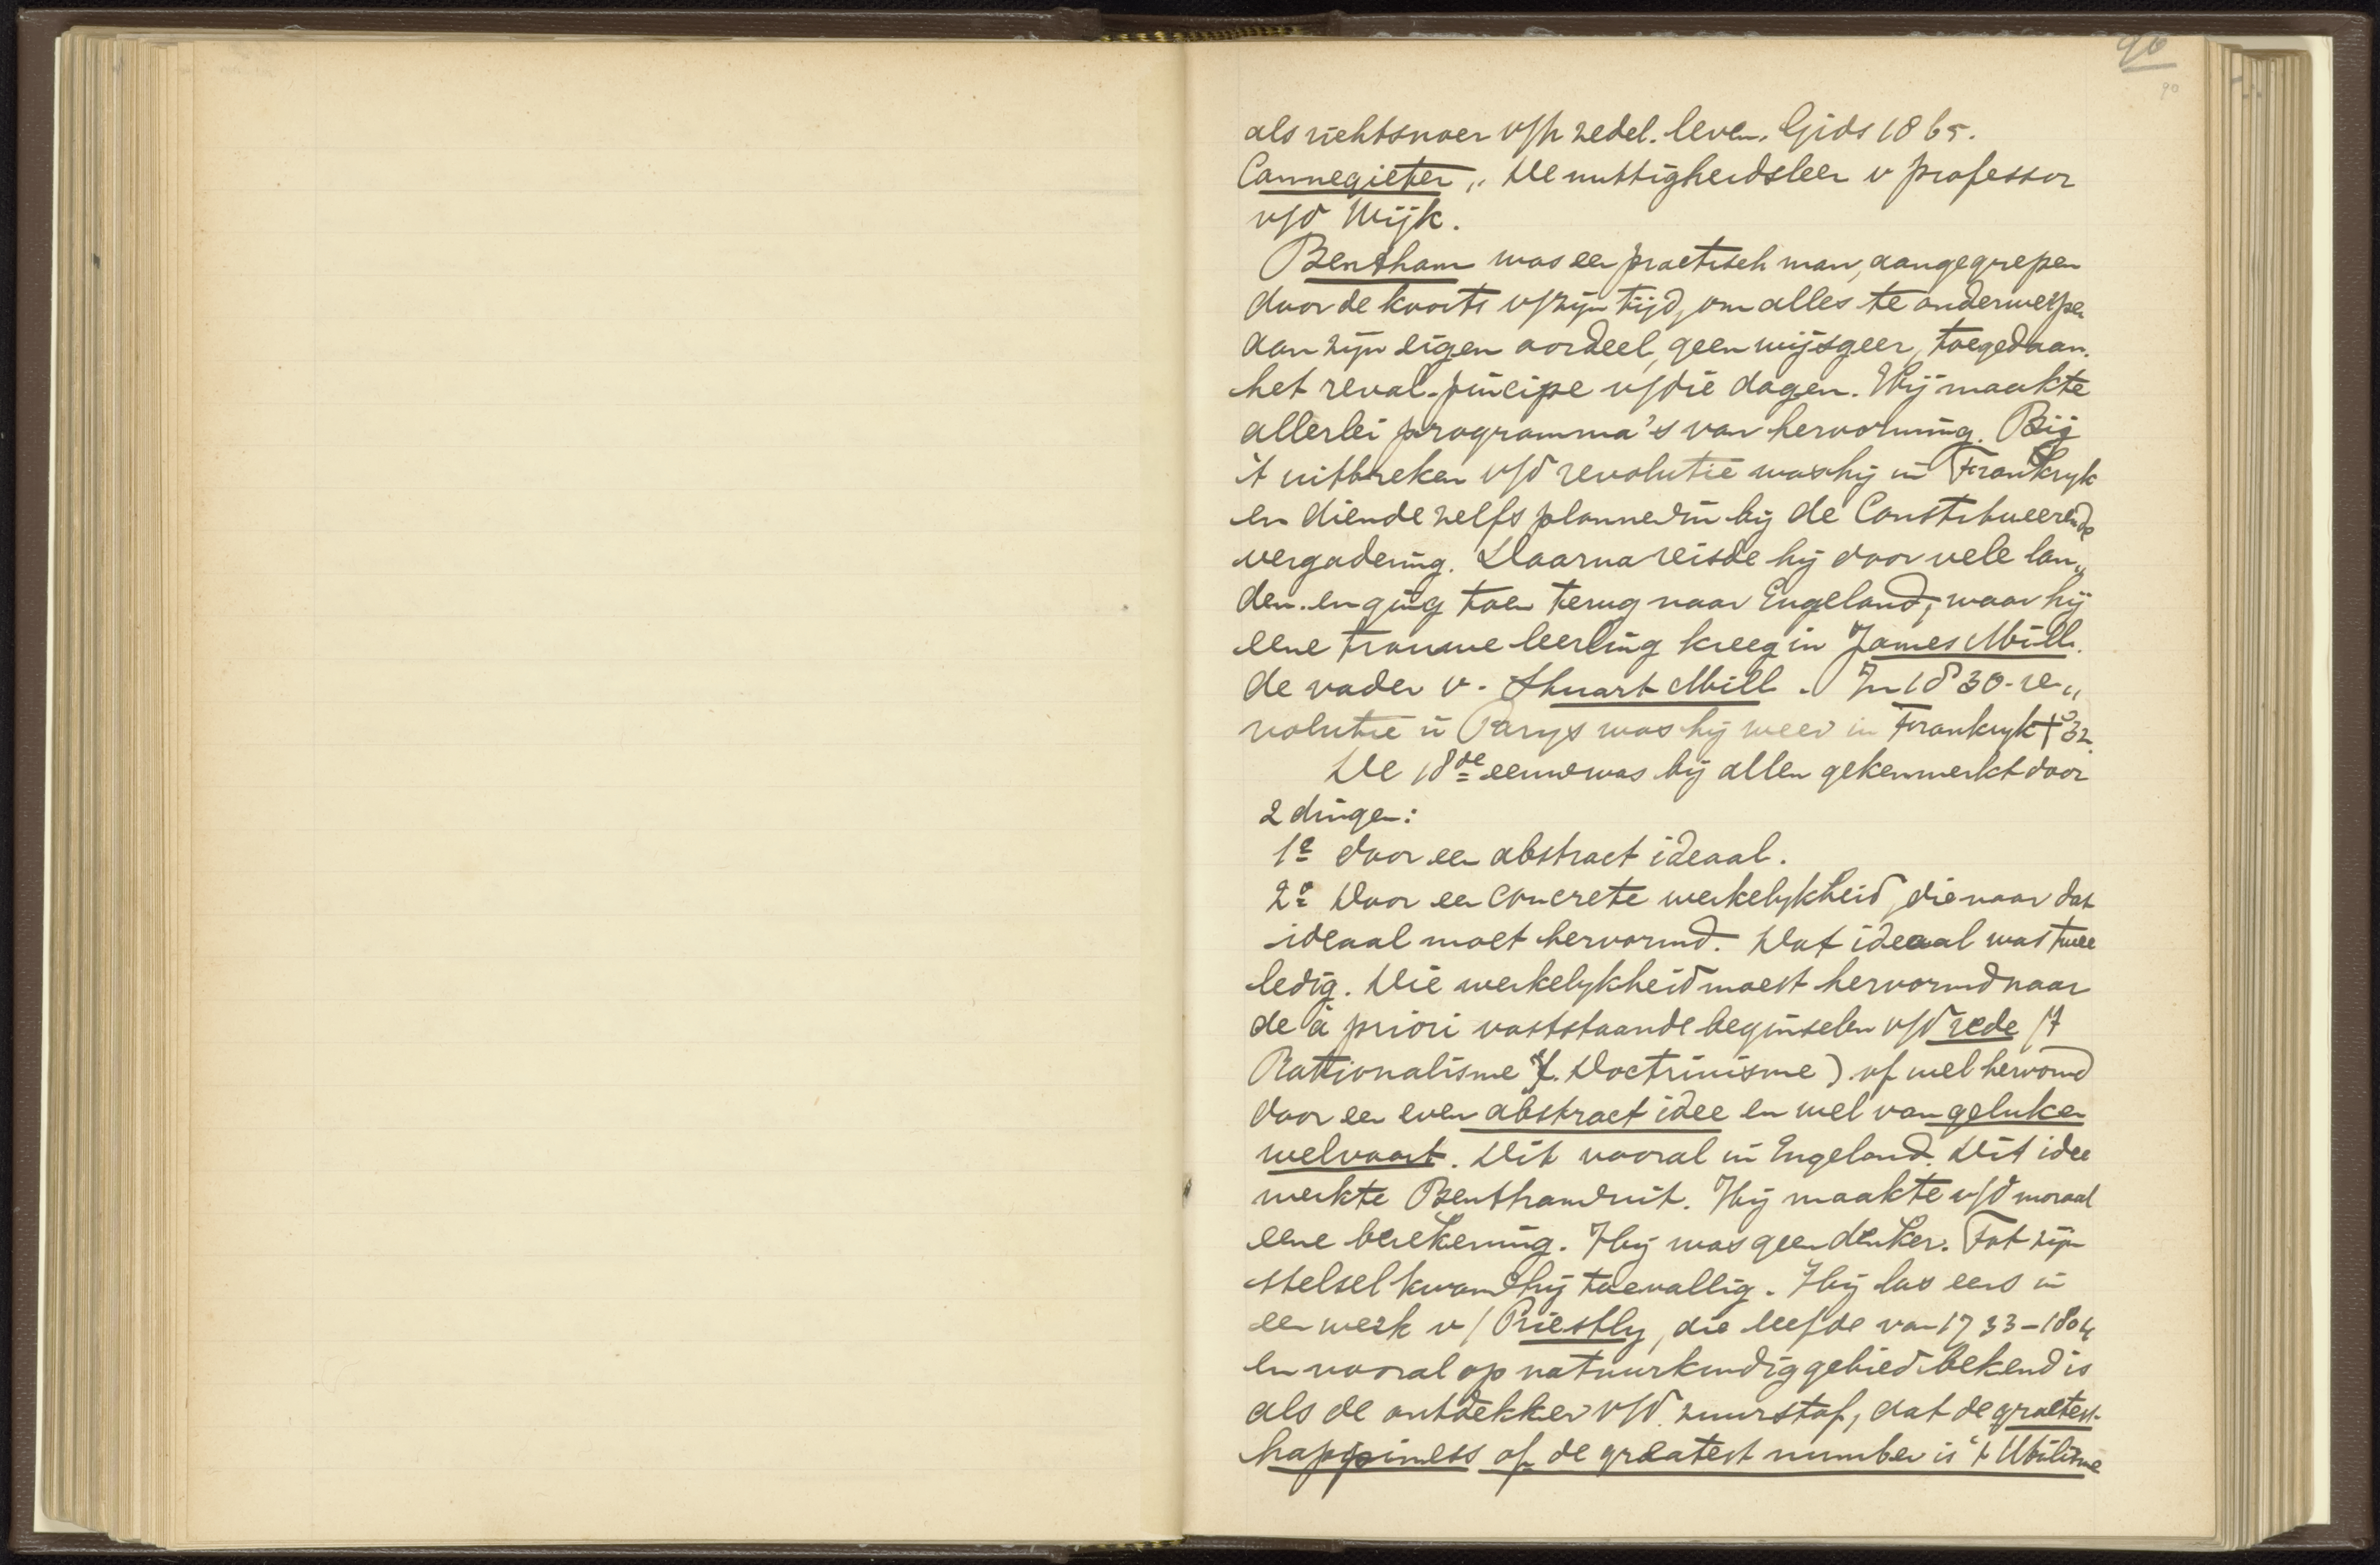 90
90
als richtsnoer v/h zedel. leven. Gids 1865.
Cannegieter „De nuttigheidsleer v professor
v/d Wijk.
Bentham was een practisch man, aangegrepen
door de koorts v/zijn tijd, om alles te onderwerpen
aan zijn eigen oordeel, geen wijsgeer, toegedaan
het reval. principe v/die dagen. Hij maakte
allerlei programma's van hervorming. Bij
't uitbreken v/d revolutie was hij in Frankryk
en diende zelfs plannen in bij de Constitueerende
vergadering. Daarna reisde hij door vele lan„
den en ging toen terug naar Engeland, waar hij
eene trouwe leerling kreeg in James Mill.
de vader v. Stuart Mill. In 1830 re„
volutie in Parys was hij weer in Frankryk † 32.
De 18de eeuw was bij allen gekenmerkt door
2 dingen:
1o door een abstract ideaal.
2o Door een concrete werkelykheid, die naar dat
ideaal moet hervormd. Dat ideaal was twee
ledig. Die werkelykheid moest hervormd naar
de à priori vaststaande beginselen v/d rede (7
Rationalisme Doctrinisme) of wel hervormd
door een even abstract idee en wel van geluk en
welvaart. Dit vooral in Engeland. Dit idee
werkte Bentham uit. Hij maakte v/d moraal
eene berekening. Hij was geen denker. Tot zijn
stelsel kwam hij toevallig. Hij las eens in
een werk v/ Priestly, die leefde van 1733–1804
en vooral op natuurkundig gebied bekend is
als de ontdekker v/d zuurstof, dat de graetest
happiness of de greatest number is 't Utilisme